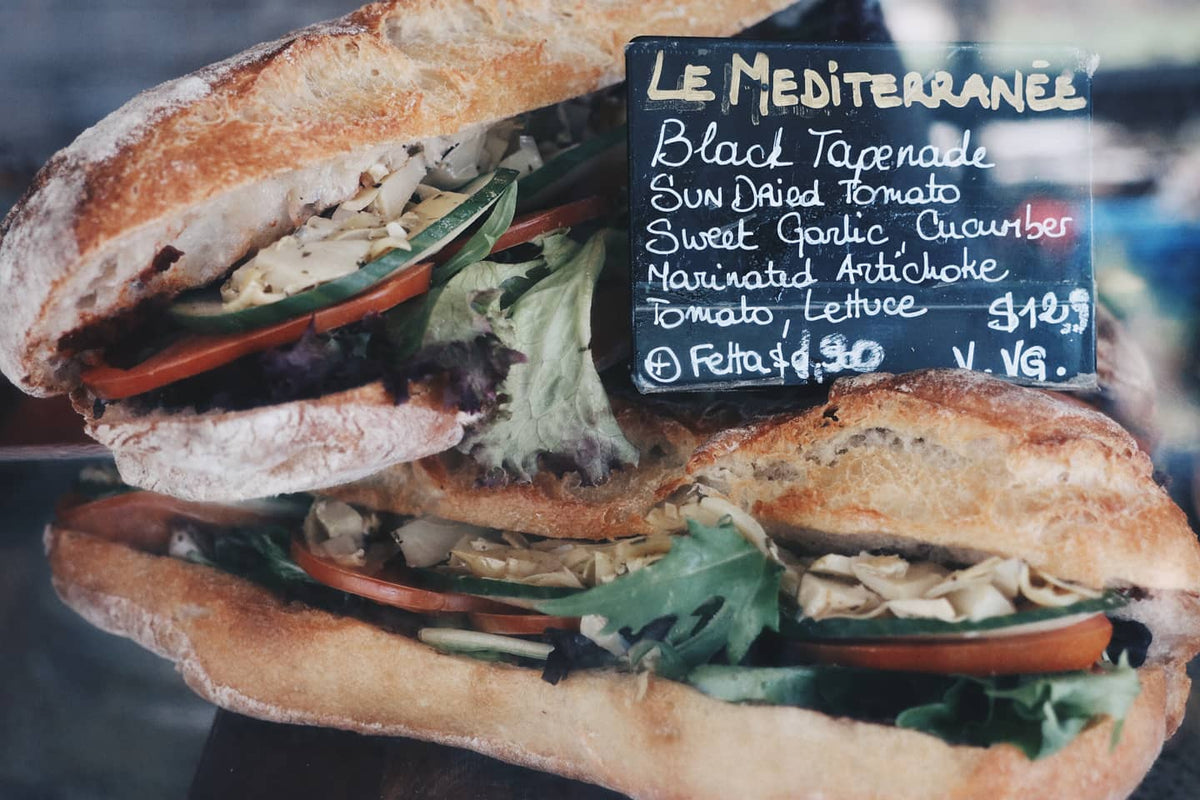 LE MEDiTERRANÉE
Black Tapenade
SUN DRied Tomato
Sweet Garlic, Cucumber
Marinated Artichoke
Tomato, Lettuce $12,9
⊕ Fetta V. VG.